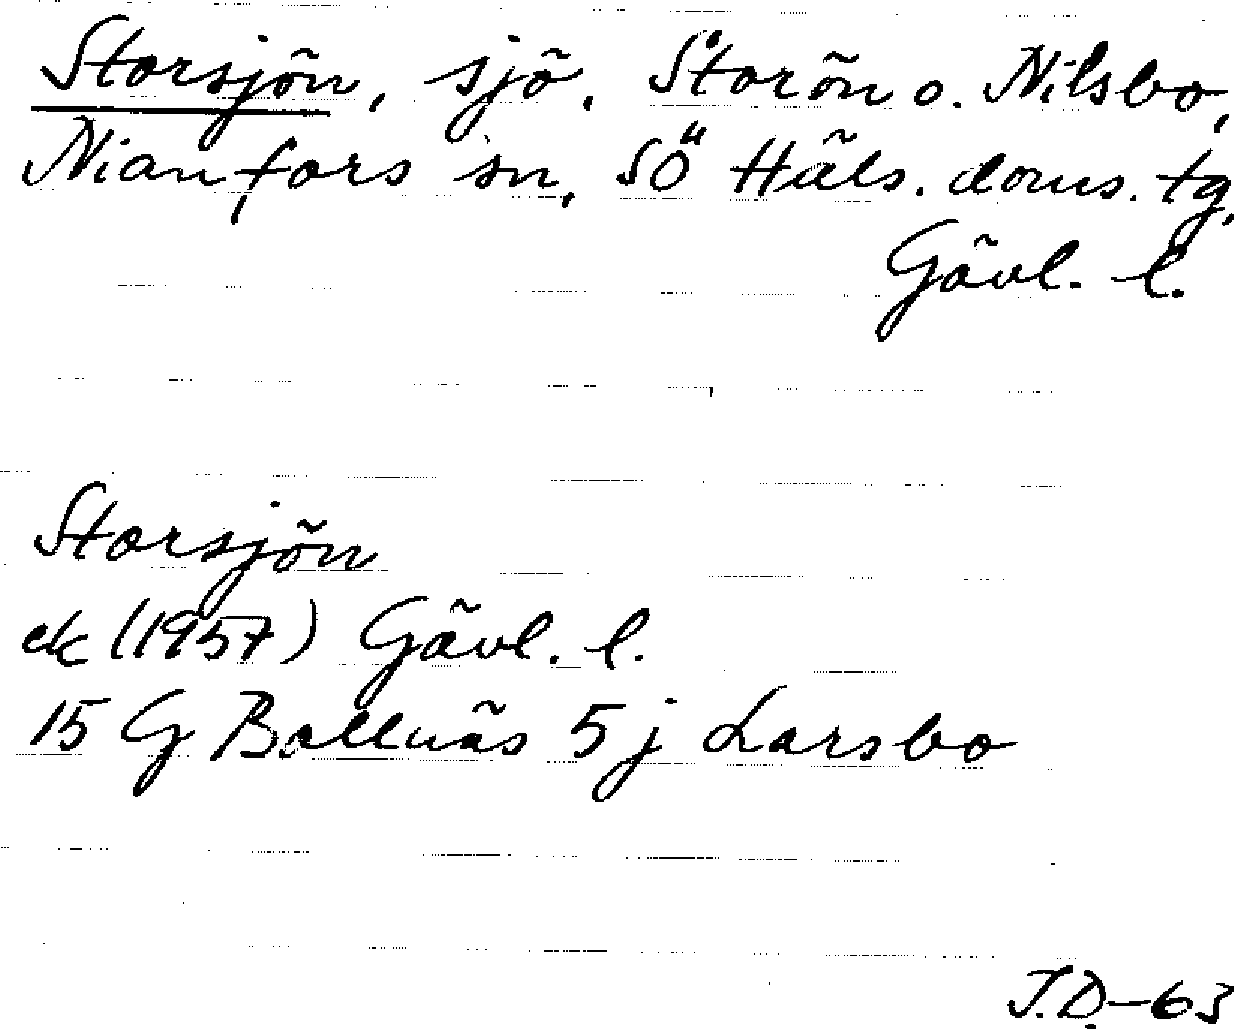 Storsjön, sjö. Storön o. Nilsbo,
Nianfors sn, SÖ Häls. doms. tg,
Gävl. l.
Storsjön
ek (1957) Gävl. l.
15 G Bollnäs 5 j Larsbo
J.D.-63